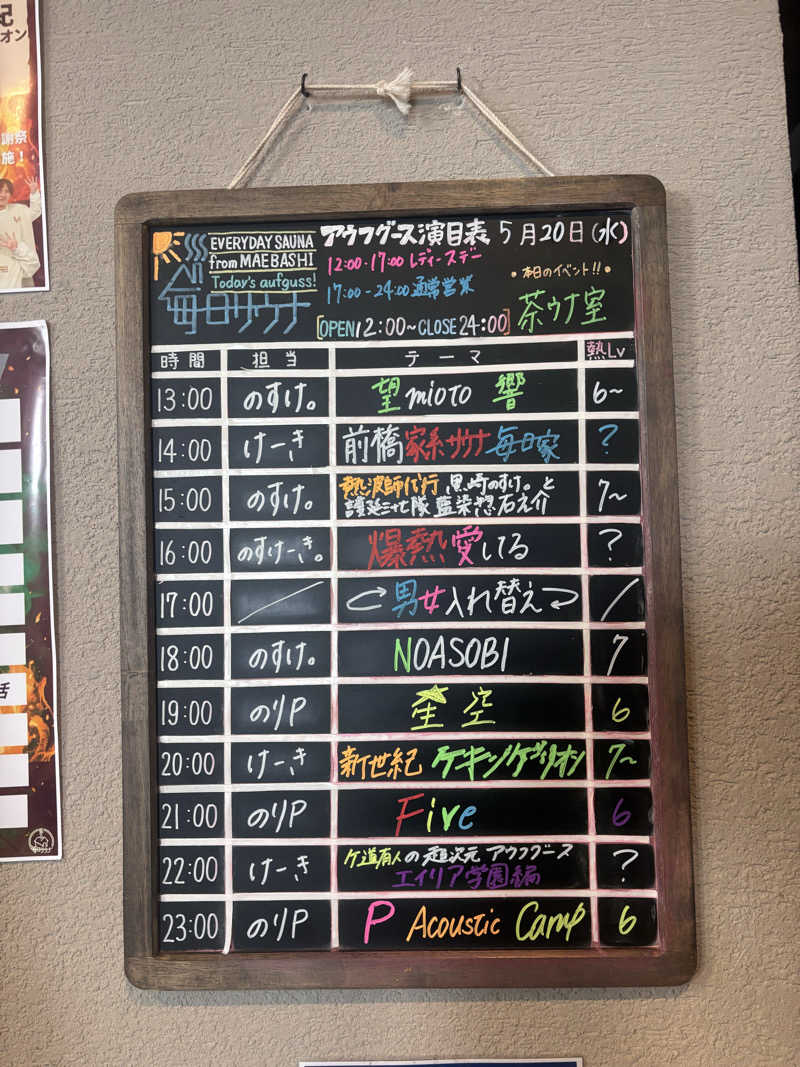 紀
オン
謝祭
施！
活
EVERYDAY SAUNA
from MAEBASHI
Today's aufguss!
毎日サウナ
アウフグース演目表 5月20日(水)
12:00-17:00 レディースデー
17:00-24:00 通常営業
・本日のイベント!!・
茶ウナ室
[OPEN12:00~CLOSE24:00]
時間 担当 テーマ 熱Lv
13:00 のすけ。 望 mioto 響 6~
14:00 けーき 前橋家系サウナ毎日家 ?
15:00 のすけ。 熱波師代行 黒崎のすけ。と
護廷三十七隊 藍染惣右之介 7~
16:00 のすけーき。 爆熱愛してる ?
17:00 / 男女入れ替え /
18:00 のすけ。 NOASOBI 7
19:00 のりP 星空 6
20:00 けーき 新世紀 ケキンゲリオン 7~
21:00 のりP Five 6
22:00 けーき ケ道有人の超次元 アウフグース
エイリア学園編 ?
23:00 のりP P Acoustic Camp 6